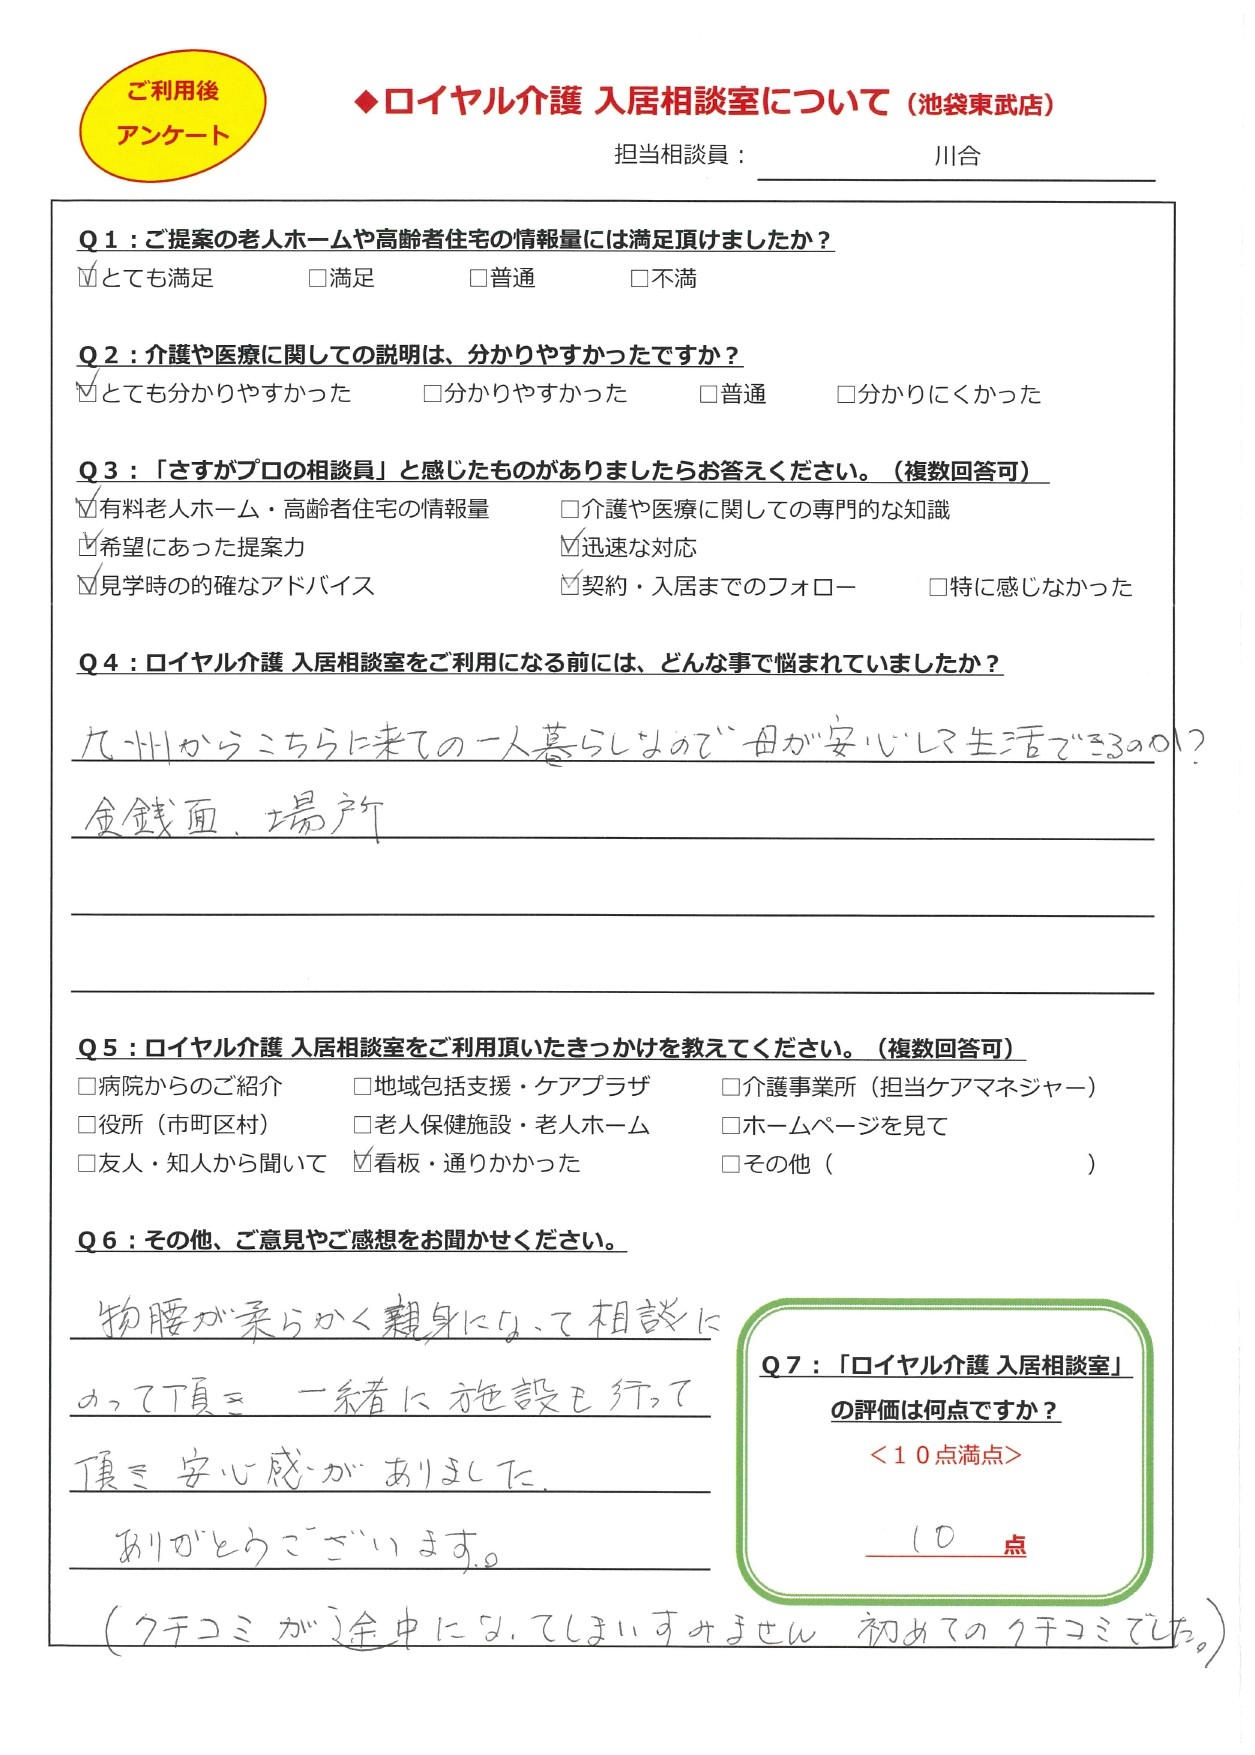 ご利用後
アンケート
◆ロイヤル介護 入居相談室について（池袋東武店）
担当相談員： 川合
Ｑ１：ご提案の老人ホームや高齢者住宅の情報量には満足頂けましたか？
☑とても満足 □満足 □普通 □不満
Ｑ２：介護や医療に関しての説明は、分かりやすかったですか？
☑とても分かりやすかった □分かりやすかった □普通 □分かりにくかった
Ｑ３：「さすがプロの相談員」と感じたものがありましたらお答えください。（複数回答可）
☑有料老人ホーム・高齢者住宅の情報量 □介護や医療に関しての専門的な知識
☑希望にあった提案力 ☑迅速な対応
☑見学時の的確なアドバイス ☑契約・入居までのフォロー □特に感じなかった
Ｑ４：ロイヤル介護 入居相談室をご利用になる前には、どんな事で悩まれていましたか？
九州からこちらに来ての一人暮らしなので 母が安心して生活できるのか？
金銭面、場所
Ｑ５：ロイヤル介護 入居相談室をご利用頂いたきっかけを教えてください。（複数回答可）
□病院からのご紹介 □地域包括支援・ケアプラザ □介護事業所（担当ケアマネジャー）
□役所（市町区村） □老人保健施設・老人ホーム □ホームページを見て
□友人・知人から聞いて ☑看板・通りかかった □その他（ ）
Ｑ６：その他、ご意見やご感想をお聞かせください。
物腰が柔らかく親身になって相談に
のって頂き 一緒に施設も行って
頂き 安心感がありました。
ありがとうございます。
（クチコミが途中になってしまいすみません 初めてのクチコミでした。）
Ｑ７：「ロイヤル介護 入居相談室」
の評価は何点ですか？
＜１０点満点＞
10 点